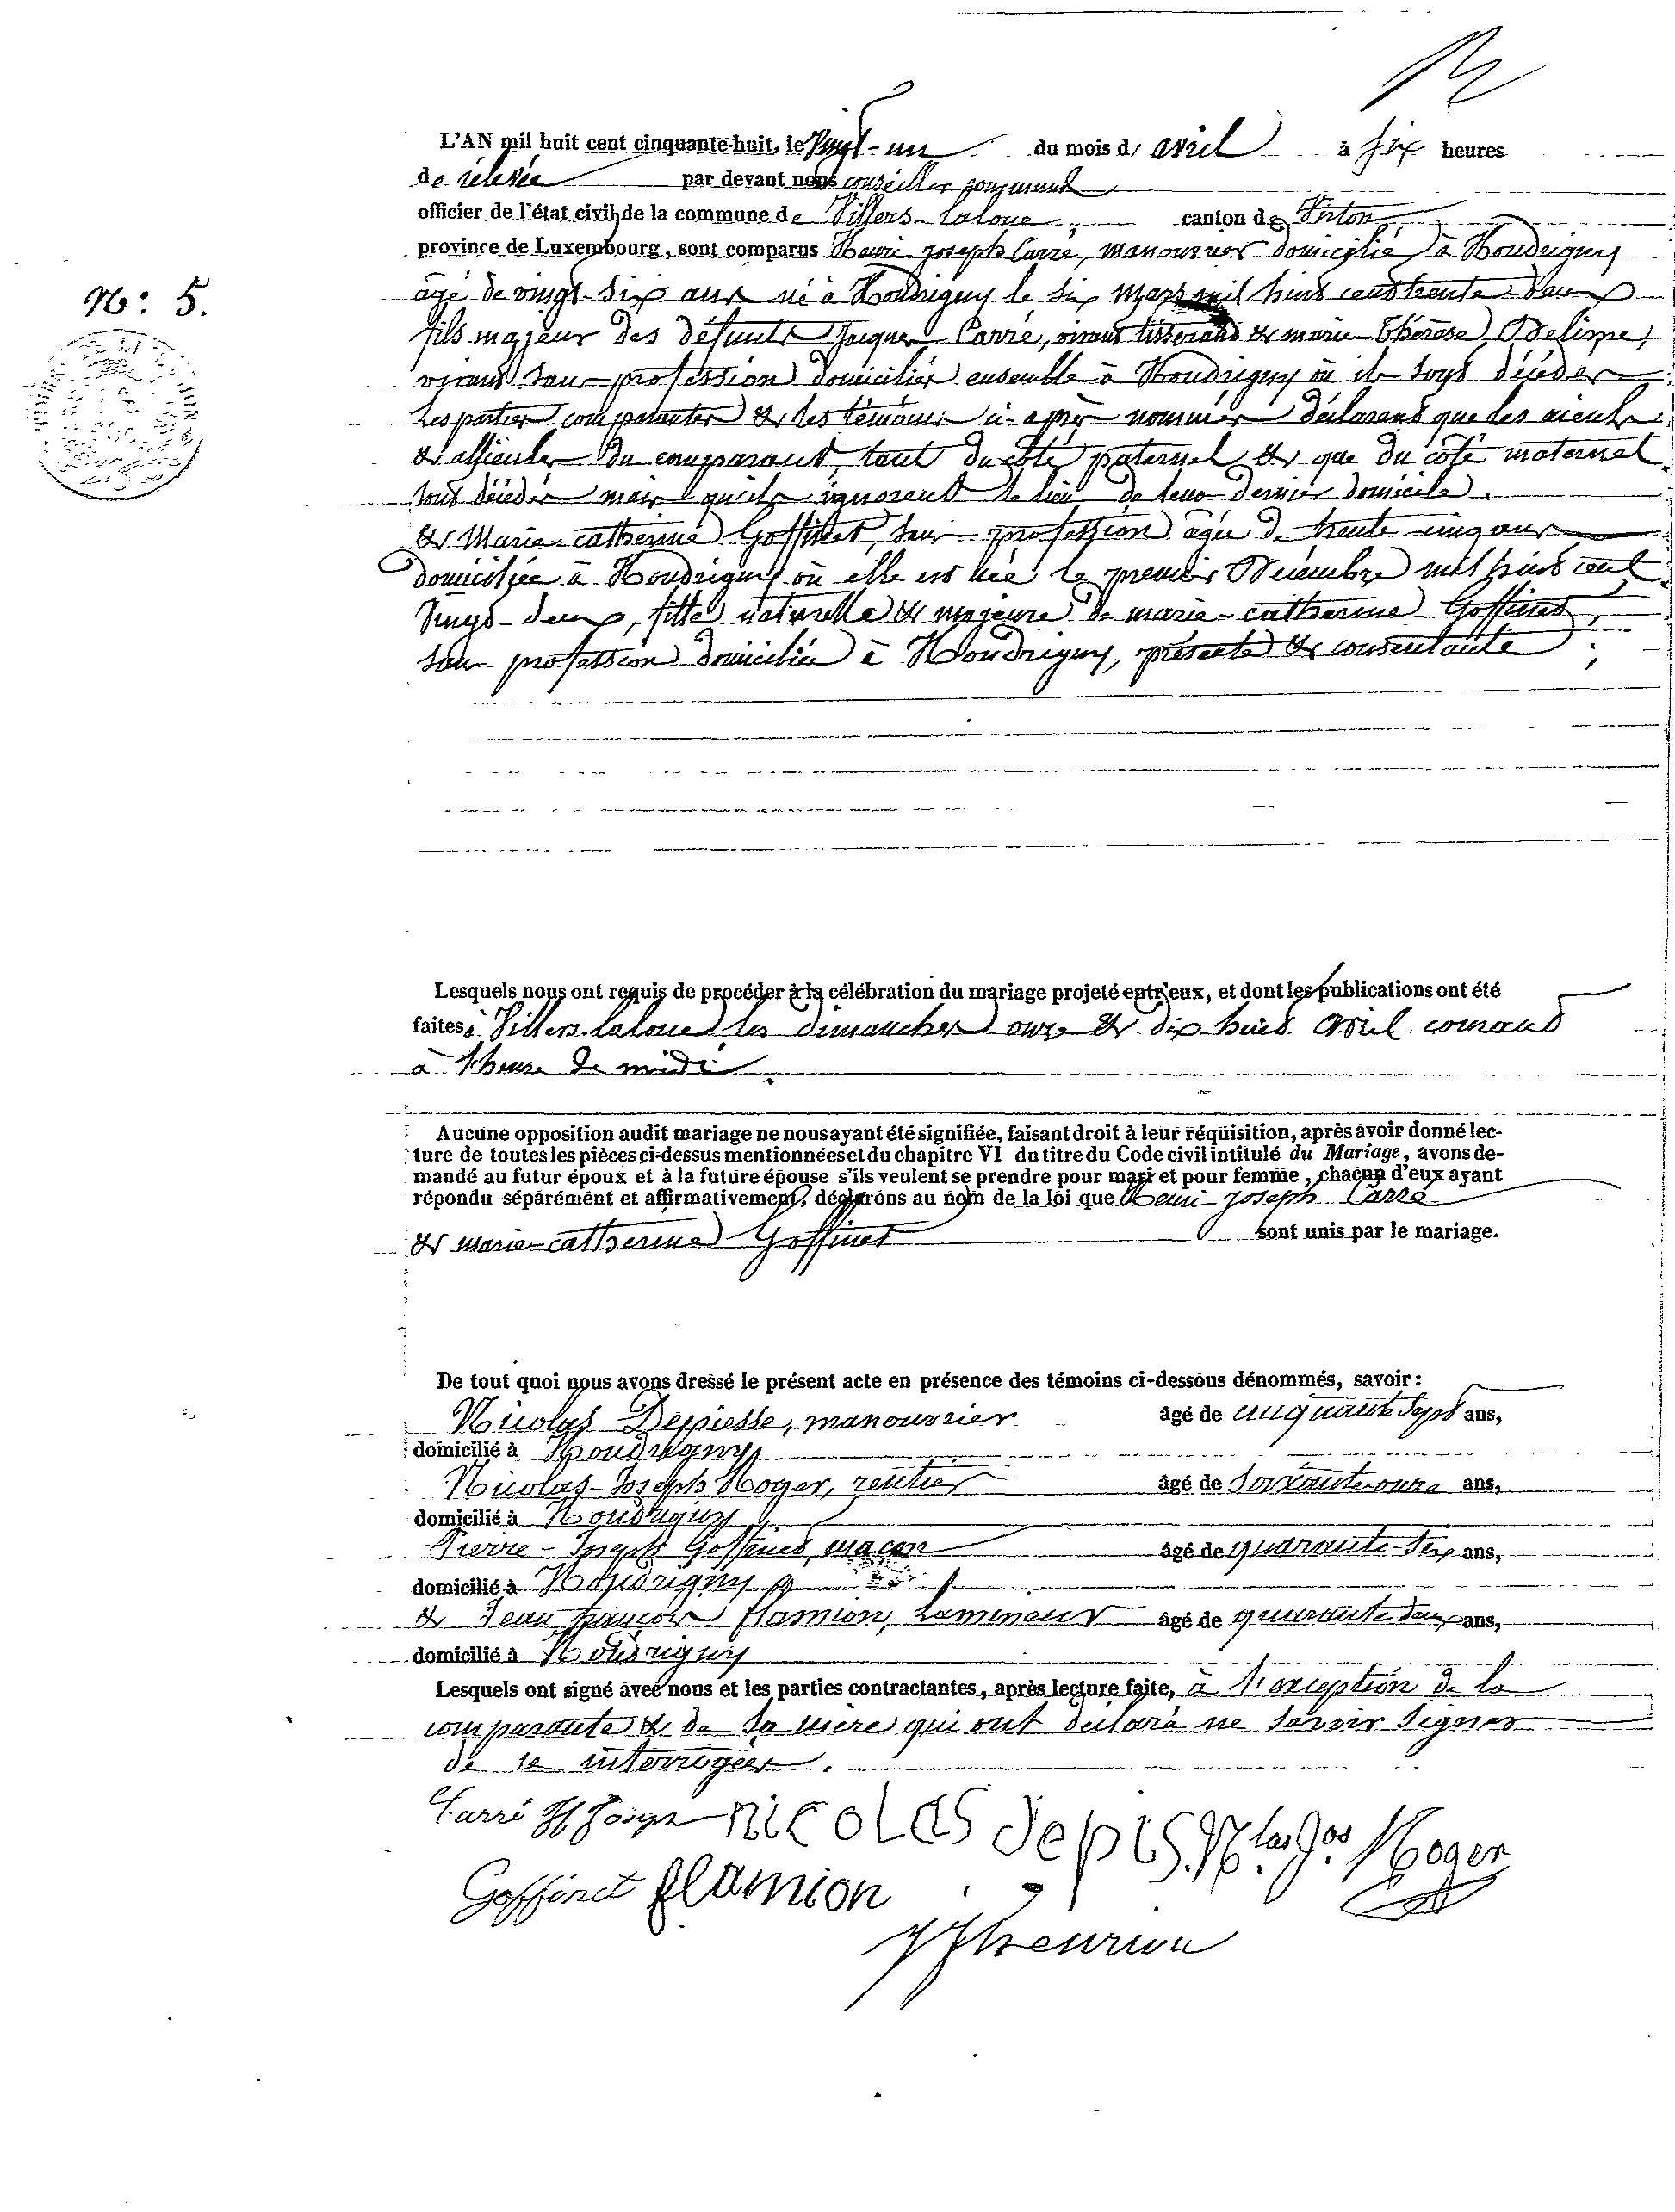 L'AN mil huit cent cinquante-huit, le Vingt-un du mois d' avril à six heures
de rélevée par devant nous conseiller communal
officier de l'état civil de la commune de Villers-laloue, canton de Virton
province de Luxembourg, sont comparus Henri-joseph Carré, manouvrier domicilié à Houdrigny
âgé de vingt-six ans né à Houdrigny le six mars mil huit cent trente-deux
fils majeur des défunts Jacques Carré, vivant tisserand & marie-Thérèse Delisse,
vivant sans profession domiciliés ensemble à Houdrigny où ils sont décédés
Les parties comparantes & les témoins ci-après nommés déclarent que les aieuls
& aïeules du comparant, tant du côté paternel & que du côté maternel
sont décédés mais qu'ils ignorent le lieu de leur dernier domicile.
& Marie-catherine Goffinet, sans profession âgée de trente-cinq ans
domiciliée à Houdrigny où elle est née le premier Décembre mil huit cent
vingt-deux, fille naturelle & majeure de marie-catherine Goffinet,
sans profession domiciliée à Houdrigny, présente & consentante ;
N°: 5.
Lesquels nous ont requis de procéder à la célébration du mariage projeté entr'eux, et dont les publications ont été
faites à Villers-laloue les dimanches onze & dix-huit avril courant
à l'heure de midi.
Aucune opposition audit mariage ne nous ayant été signifiée, faisant droit à leur réquisition, après avoir donné lec-
ture de toutes les pièces ci-dessus mentionnées et du chapitre VI du titre du Code civil intitulé du Mariage, avons de-
mandé au futur époux et à la future épouse s'ils veulent se prendre pour mari et pour femme, chacun d'eux ayant
répondu séparément et affirmativement, déclarons au nom de la loi que Henri-joseph Carré
& marie-catherine Goffinet sont unis par le mariage.
De tout quoi nous avons dressé le présent acte en présence des témoins ci-dessous dénommés, savoir :
Nicolas Depiesse, manouvrier âgé de cinquante-sept ans,
domicilié à Houdrigny
Nicolas-Joseph Roger, rentier âgé de soixante-onze ans,
domicilié à Houdrigny
Pierre-Joseph Goffinet, maçon âgé de quarante-six ans,
domicilié à Houdrigny
& Jean-françois flamion, Lamineur âgé de quarante-deux ans,
domicilié à Houdrigny
Lesquels ont signé avec nous et les parties contractantes, après lecture faite, à l'exception de la
comparante & de sa mère qui ont déclaré ne savoir signer
de ce interrogées.
Carré H Josep nicolas depis. N.las Jos. Roger
Goffinet flamion
JJhenrion